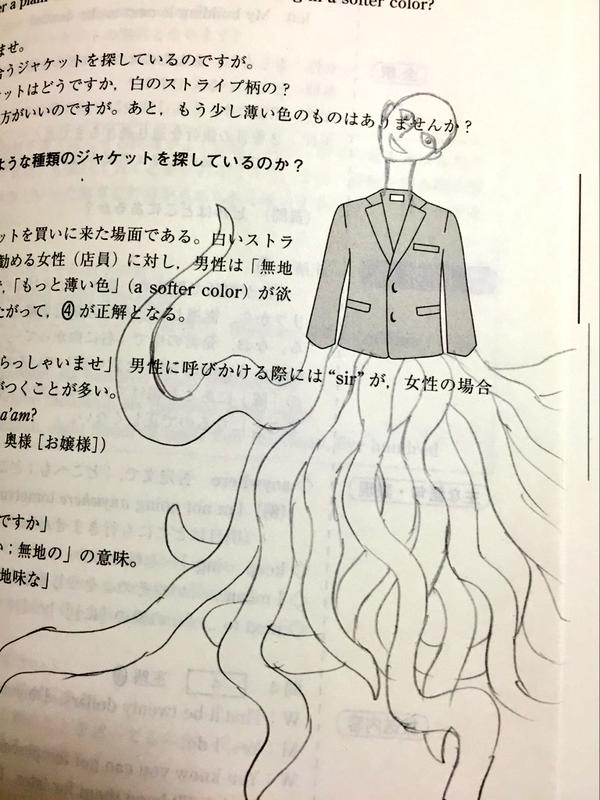 in a softer color?
ませ。
合うジャケットを探しているのですが。
ケットはどうですか，白のストライプ柄の？
方がいいのですが。あと，もう少し薄い色のものはありませんか？
ような種類のジャケットを探しているのか？
ケットを買いに来た場面である。白いストラ
勧める女性（店員）に対し，男性は「無地
，「もっと薄い色」（a softer color）が欲
たがって，④が正解となる。
らっしゃいませ」 男性に呼びかける際には“sir”が，女性の場合
がつくことが多い。
a'am?
奥様［お嬢様］）
ですか」
い；無地の」の意味。
地味な」